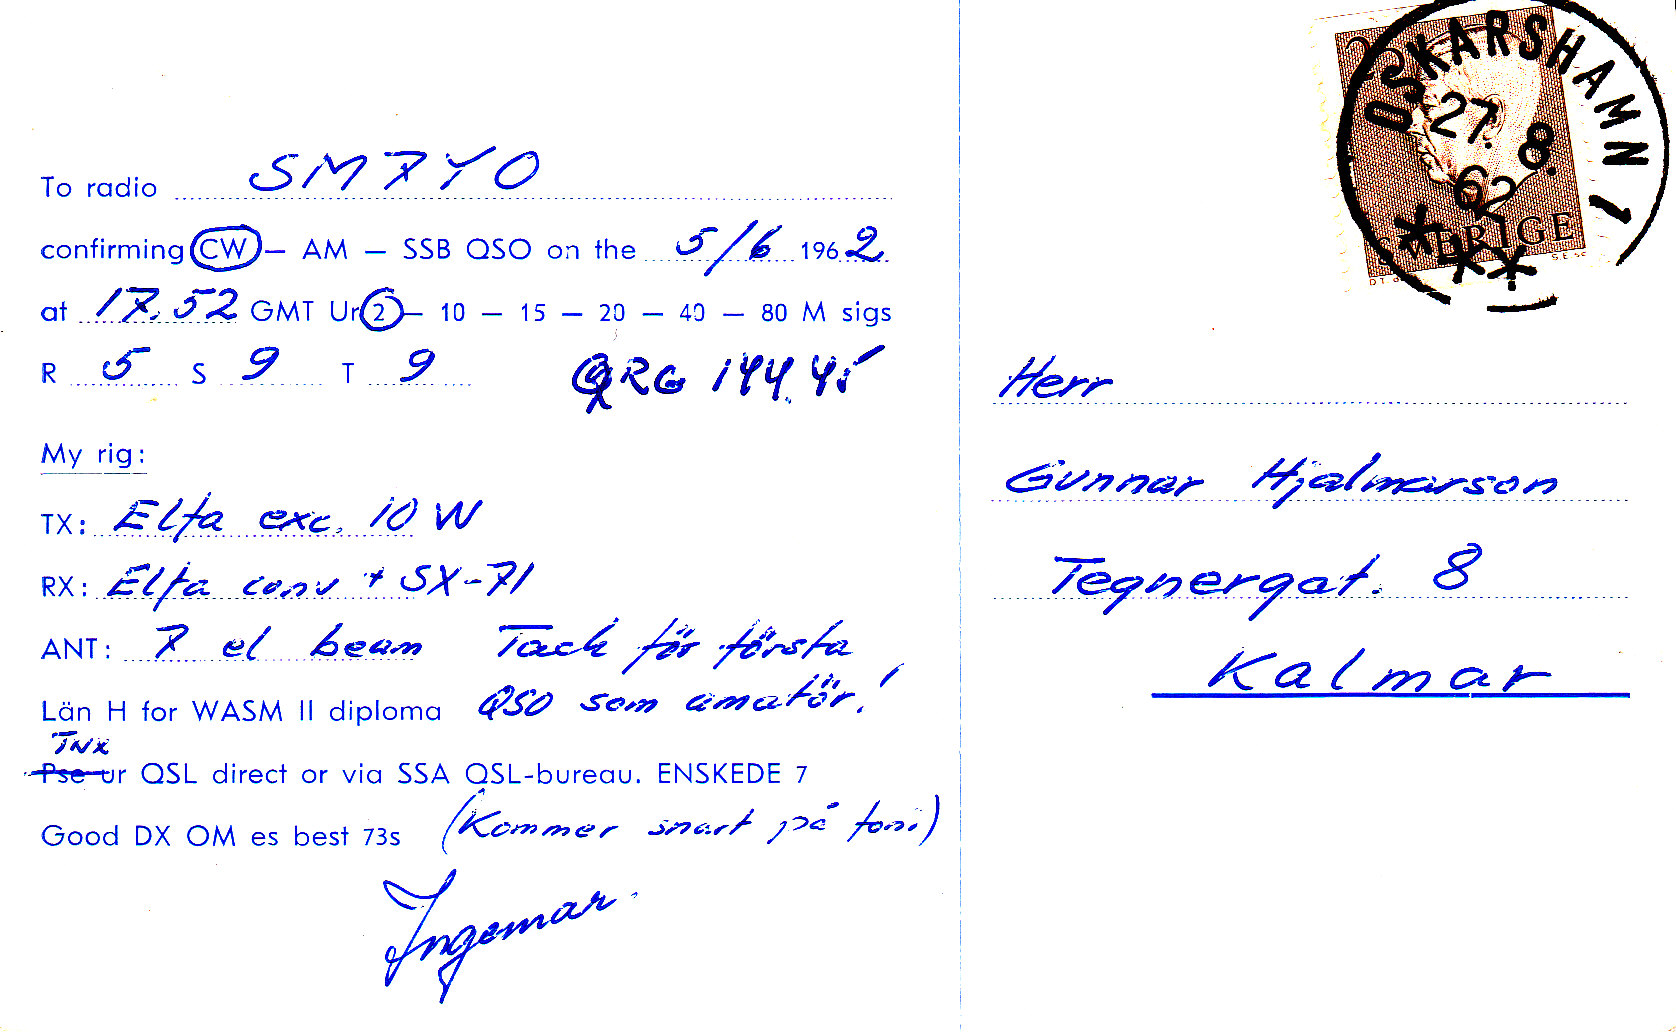 To radio SM7YO
confirming CW – AM – SSB QSO on the 5/6 1962
at 17.52 GMT Ur 2 – 10 – 15 – 20 – 40 – 80 M sigs
R 5 S 9 T 9 QRG 144.45
My rig:
TX: Elfa exc. 10 W
RX: Elfa conv + SX-71
ANT: 7 el beam Tack för första
Län H for WASM II diploma QSO som amatör!
Tnx
Pse ur QSL direct or via SSA QSL-bureau. ENSKEDE 7
Good DX OM es best 73s (Kommer snart på foni)
Ingemar
OSKARSHAMN 1
27. 8.
62
SVERIGE
Herr
Gunnar Hjalmarson
Tegnergat. 8
Kalmar